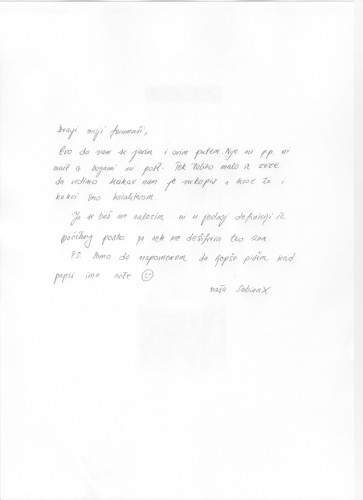 Dragi moji forumaši,
Evo da vam se javim i ovim putem. Nije ni pp. ni
mail a bogami ni post. Tek toliko malo iz zeze
da vidimo kakav nam je rukopis a kroz to i
kakvi smo karakterom.
Ja se baš ne nalazim ni u jednoj definiciji iz
počétnog posta pa nek me dešifrira tko zna.
P.S. Samo da napomenem da ljepše pišem kad
papir ima crte ☺
Vaša SabinaX